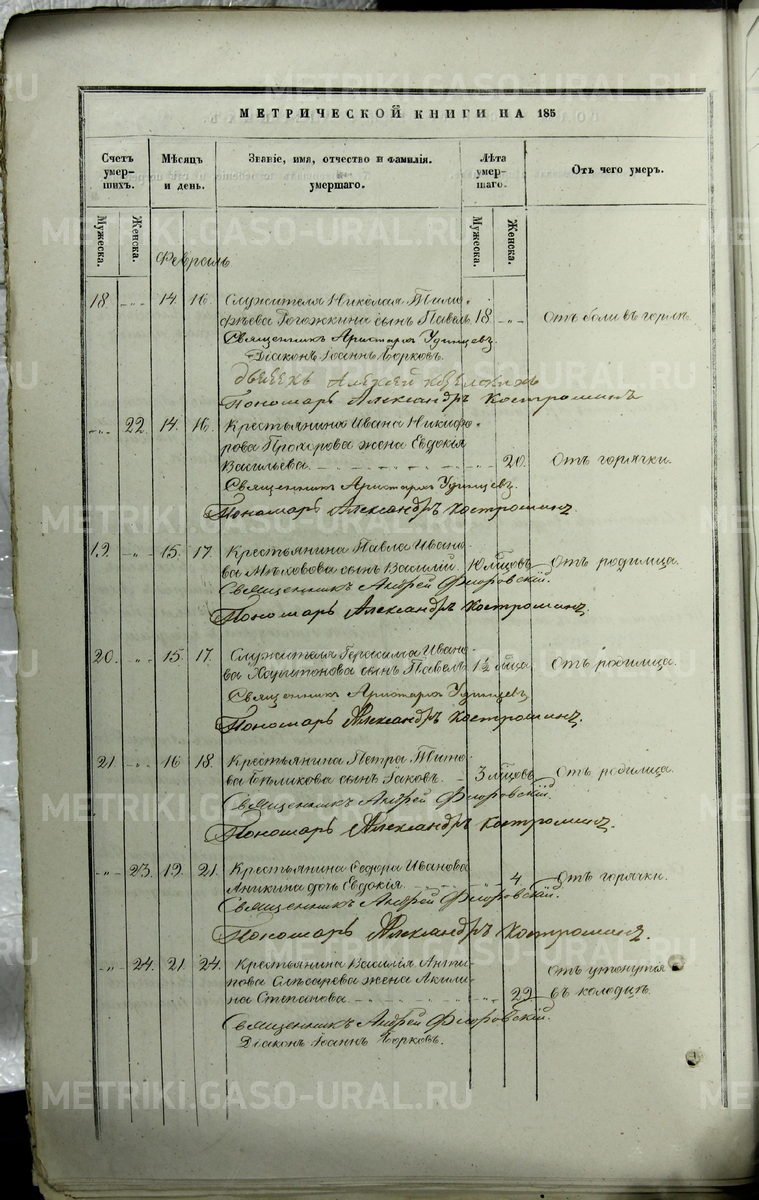 МЕТРИЧЕСКОЙ КНИГИ НА 185
Счетъ умер- шихъ.
Мѣсяцъ и день.
Званіе, имя, отчество и фамилія. умершаго.
Лѣта умер- шаго.
Отъ чего умеръ.
Мужеска. Женска. Мужеска. Женска.
Февраль
18. 14. 16. Служителя Николая Тимо-
фѣева Рогожкина сынъ Павелъ. 18. Отъ боли въ горлѣ.
Священникъ Аристархъ Удинцевъ.
Діаконъ Іоаннъ Борковъ.
Алексей
Пономарь Александръ Костроминъ
22. 14. 16. Крестьянина Ивана Никифо-
рова Прохорова жена Евдокія
Васильева. 20. Отъ горячки.
Священникъ Аристархъ Удинцевъ.
Пономарь Александръ Костроминъ.
19. 15. 17. Крестьянина Павла Ивано-
ва сынъ Василій. 10 мѣсцовъ Отъ родимца.
Священникъ Андрей Флоровскій.
Пономарь Александръ Костроминъ.
20. 15. 17. Служителя Герасима Ивано-
ва Харитонова сынъ Павелъ. 1½ мѣсца. Отъ родимца.
Священникъ Аристархъ Удинцевъ
Пономарь Александръ Костроминъ.
21. 16 18. Крестьянина Петра Тито-
ва Бѣликова сынъ Іаковъ. 3 мѣсцовъ Отъ родимца.
Священникъ Андрей Флоровскій.
Пономарь Александръ Костроминъ.
23. 19. 21. Крестьянина Ѳедора Иванова
Аникина дочь Евдокія 4 Отъ горячки.
Священникъ Андрей Флоровскій.
Пономарь Александръ Костроминъ.
24. 21. 24. Крестьянина Василія Анти-
пова Слѣсарева жена Акили-
на Степанова. 29 Отъ утонутія въ колодцѣ.
Священникъ Андрей Флоровскій.
Діаконъ Іоаннъ Борковъ.
METRIKI.GASO-URAL.RU